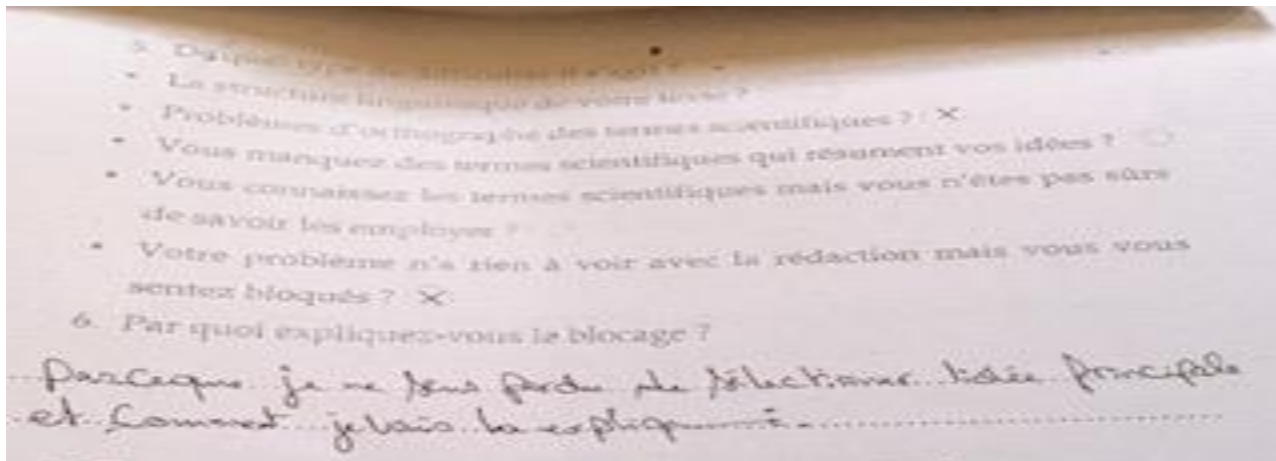 5. De quel type de difficultés il s'agit ?
• La structure linguistique de votre texte ?
• Problèmes d'orthographe des termes scientifiques ? : X
• Vous manquez des termes scientifiques qui résument vos idées ?
• Vous connaissez les termes scientifiques mais vous n'êtes pas sûrs
de savoir les employer ?
• Votre problème n'a rien à voir avec la rédaction mais vous vous
sentez bloqués ? X
6. Par quoi expliquez-vous le blocage ?
Parceque je me sens perdu de sélectionner l'idée principale
et comment je vais la